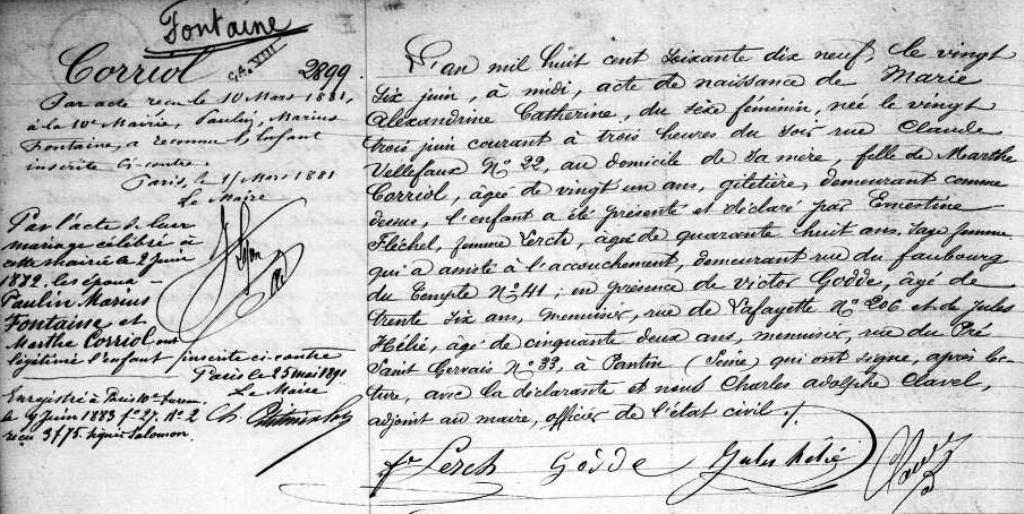 Fontaine
Corriol
2899
Par acte reçu le 10 Mars 1881,
à la 10e Mairie, Paulin, Marius
Fontaine, a reconnu l'enfant
inscrite ci-contre.
Paris, le 11 Mars 1881
Le Maire
Par l'acte de leur
mariage célébré à
cette mairie le 2 Juin
1882 les époux
Paulin Marius
Fontaine et
Marthe Corriol ont
légitimé l'enfant inscrite ci-contre
Paris le 25 mai 1891
Le Maire
Enregistré à Paris 10e
le 9 Juin 1883 fo 27. No 2
reçu 3f75. signé Salomon.
L'an mil huit cent soixante dix neuf, le vingt
six juin, à midi, acte de naissance de Marie
Alexandrine Catherine, du sexe féminin, née le vingt
trois juin courant à trois heures du soir rue Claude
Vellefaux No 22, au domicile de sa mère, fille de Marthe
Corriol, âgée de vingt un ans, giletière, demeurant comme
dessus, l'enfant a été présenté et déclaré par Ernestine
Fléchel, femme Lerch, âgée de quarante huit ans, sage femme
qui a assisté à l'accouchement, demeurant rue du faubourg
du Temple No 41; en présence de victor Godde, âgé de
trente six ans, menuisier, rue de Lafayette No 206 et de Jules
Hélié, âgé de cinquante deux ans, menuisier, rue du Pré
Saint Gervais No 33, à Pantin (Seine) qui ont signé, après lec-
ture, avec la déclarante et nous Charles adolphe Clavel,
adjoint au maire, officier de l'état civil ./.
fe Lerch Godde Jules hélié Clavel